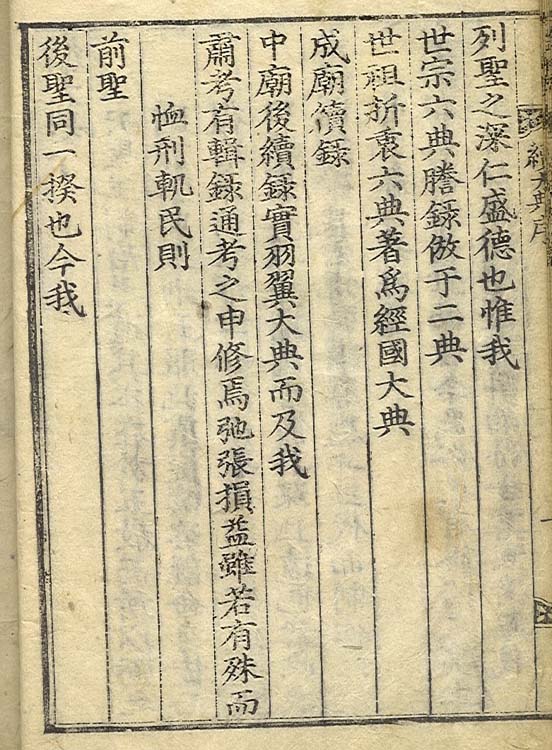 續大典序
列聖之深仁盛德也惟我
世宗六典謄錄倣于二典
世祖折衷六典著爲經國大典
成廟續錄
中廟後續錄實羽翼大典而及我
肅考有輯錄通考之申修焉弛張損益雖若有殊而
恤刑軌民則
前聖
後聖同一揆也今我